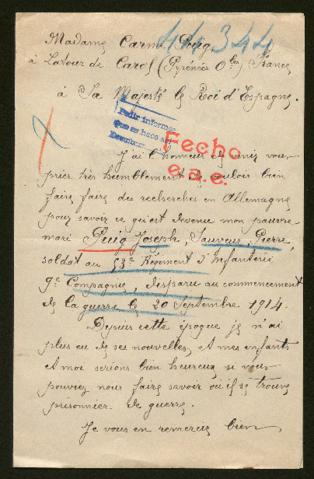 Madame Carmen Puig 44.344
à Latour de Carol (Pyrénées Oles) France
à Sa Majesté le Roi d'Espagne.
Pedir informes
que se hace
Fecho
e.s.e.
J'ai l'honneur de venir vous
prier très humblement de vouloir bien
faire faire des recherches en Allemagne
pour savoir ce qu'est devenu mon pauvre
mari Puig Joseph, Sauveur, Pierre,
soldat au 53e Régiment d'Infanterie
9e Compagnie, disparu au commencement
de la guerre le 20 Septembre 1914.
Depuis cette époque je n'ai
plus eu de ses nouvelles, et mes enfants
et moi serions bien heureux si vous
pouviez nous faire savoir où il se trouve
prisonnier de guerre.
Je vous en remercie bien,